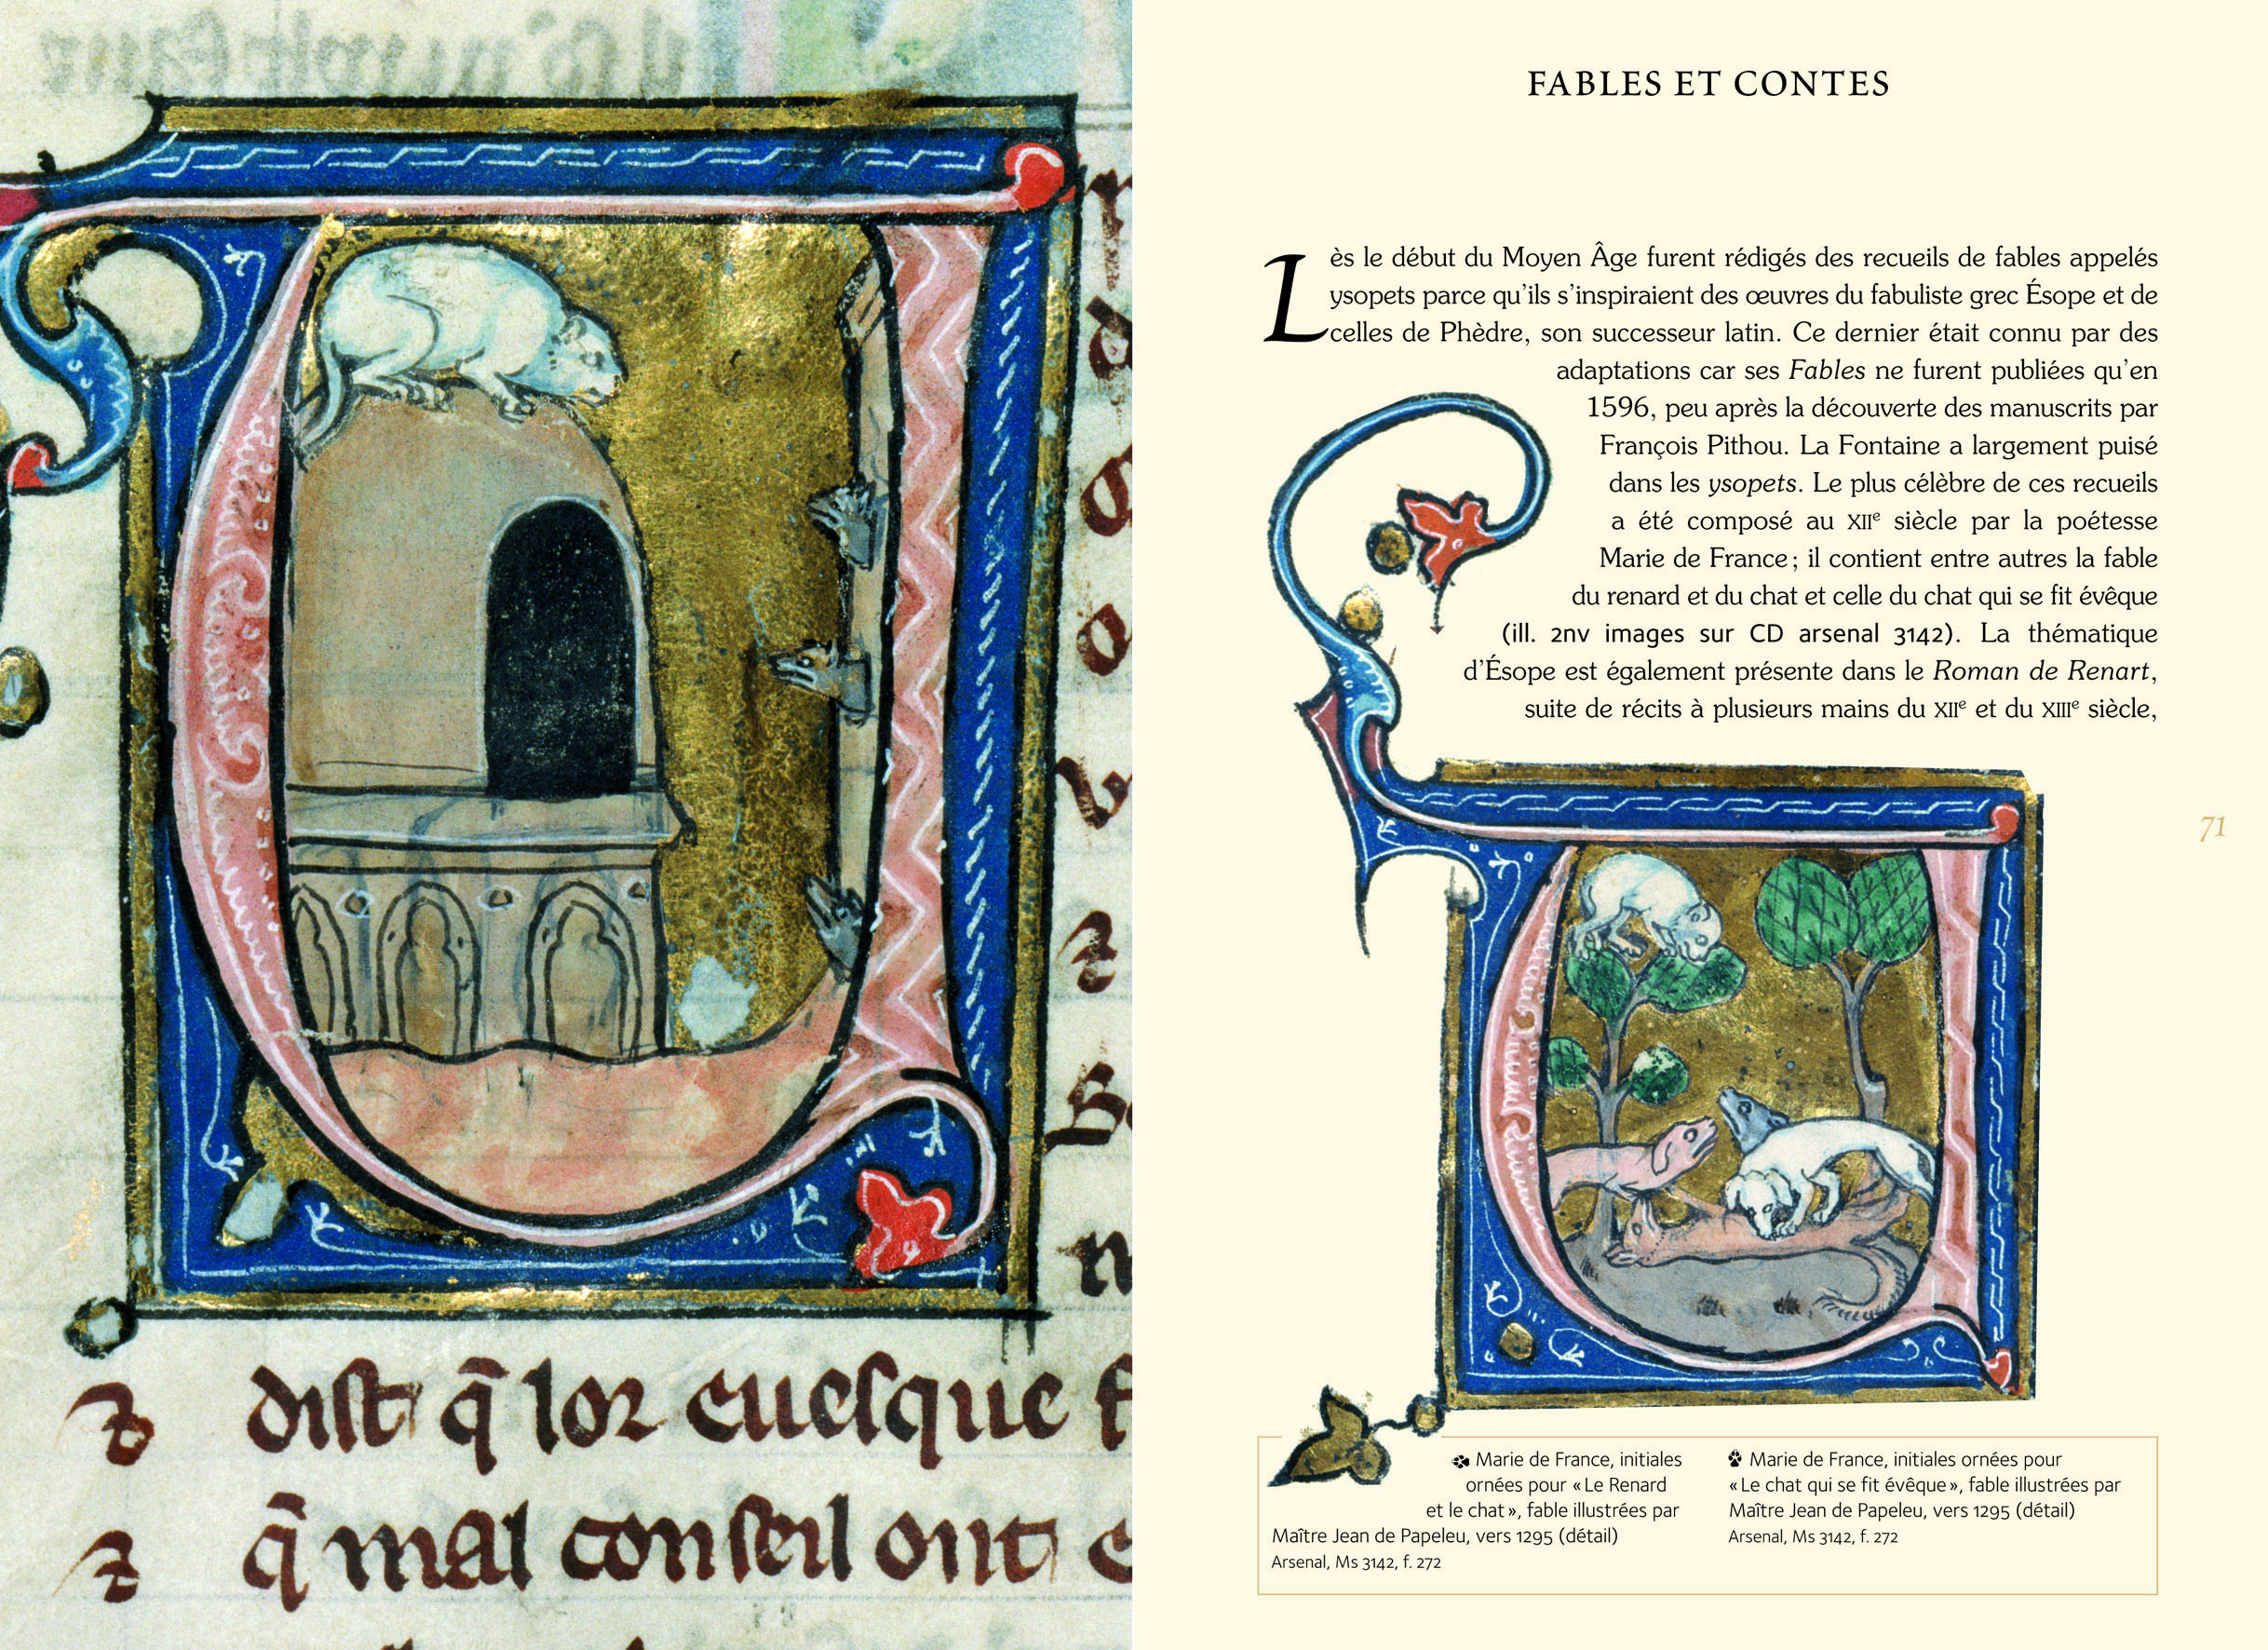 dist q̄ lor euesque
q̄ mal conseil ont
FABLES ET CONTES
Lès le début du Moyen Âge furent rédigés des recueils de fables appelés
ysopets parce qu’ils s’inspiraient des œuvres du fabuliste grec Ésope et de
celles de Phèdre, son successeur latin. Ce dernier était connu par des
adaptations car ses Fables ne furent publiées qu’en
1596, peu après la découverte des manuscrits par
François Pithou. La Fontaine a largement puisé
dans les ysopets. Le plus célèbre de ces recueils
a été composé au XIIe siècle par la poétesse
Marie de France ; il contient entre autres la fable
du renard et du chat et celle du chat qui se fit évêque
(ill. 2nv images sur CD arsenal 3142). La thématique
d’Ésope est également présente dans le Roman de Renart,
suite de récits à plusieurs mains du XIIe et du XIIIe siècle,
71
Marie de France, initiales
ornées pour « Le Renard
et le chat », fable illustrées par
Maître Jean de Papeleu, vers 1295 (détail)
Arsenal, Ms 3142, f. 272
Marie de France, initiales ornées pour
« Le chat qui se fit évêque », fable illustrées par
Maître Jean de Papeleu, vers 1295 (détail)
Arsenal, Ms 3142, f. 272